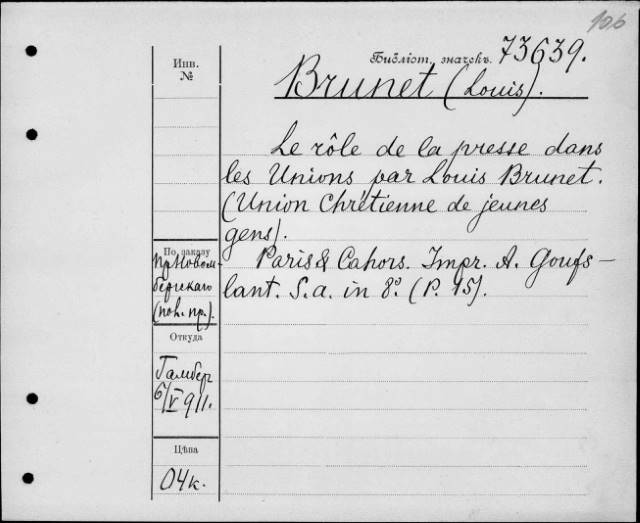 106
Библіот. значокъ 73639.
Инв.
№
Brunet (Louis).
Le rôle de la presse dans
les Unions par Louis Brunet.
(Union Chrétienne de jeunes
gens).
По заказу
Paris & Cahors. Impr. A. Goufs-
lant. S. a. in 8°. (P. 15).
(пок. пр.).
Откуда
Гамбер
6/V 911.
Цѣна
04к.